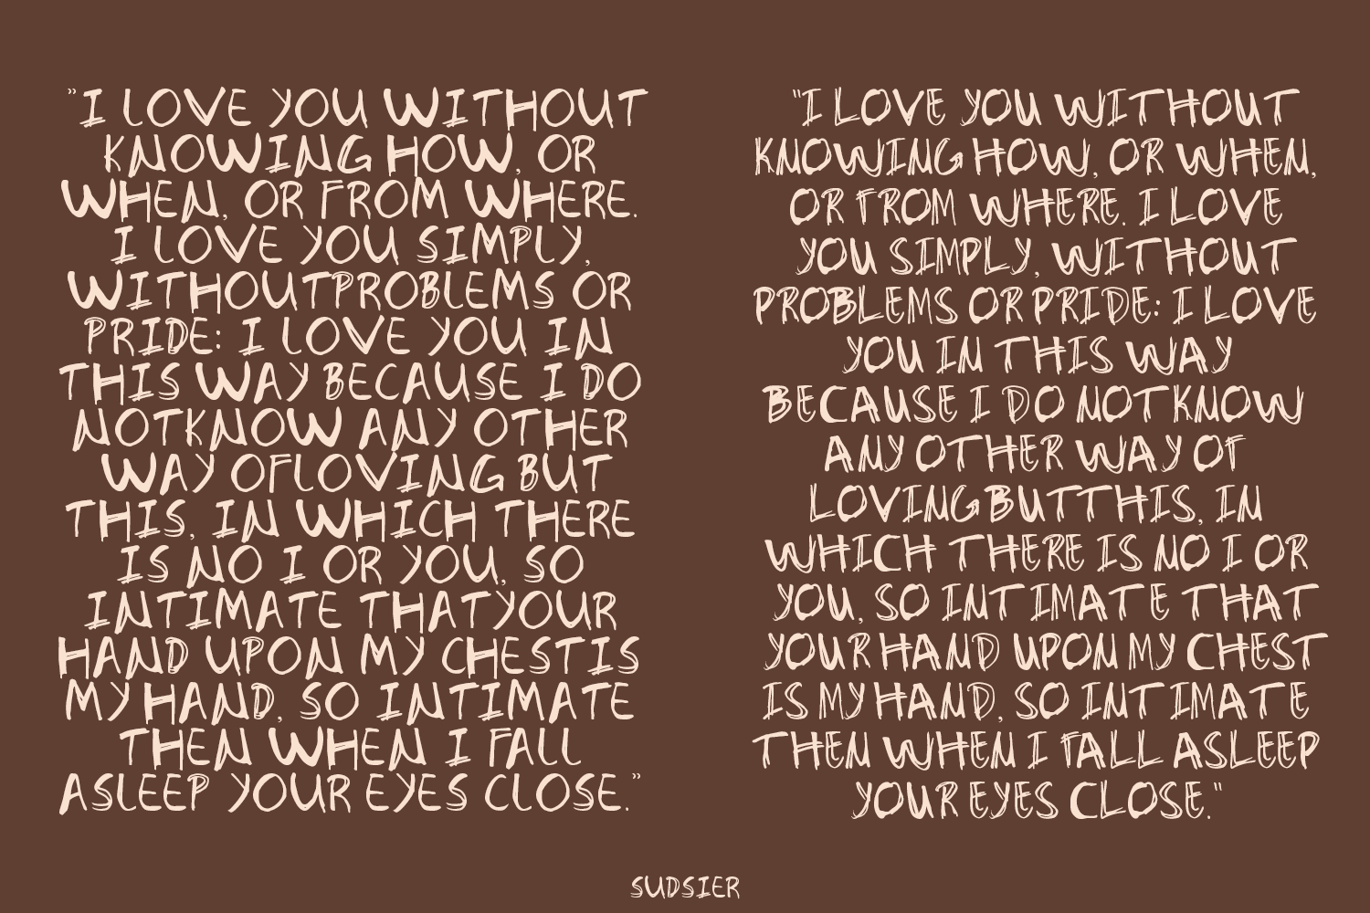 "I LOVE YOU WITHOUT
KNOWING HOW, OR
WHEN, OR FROM WHERE.
I LOVE YOU SIMPLY,
WITHOUTPROBLEMS OR
PRIDE: I LOVE YOU IN
THIS WAY BECAUSE I DO
NOTKNOW ANY OTHER
WAY OFLOVING BUT
THIS, IN WHICH THERE
IS NO I OR YOU, SO
INTIMATE THATYOUR
HAND UPON MY CHESTIS
MY HAND, SO INTIMATE
THEN WHEN I FALL
ASLEEP YOUR EYES CLOSE."
"I LOVE YOU WITHOUT
KNOWING HOW, OR WHEN,
OR FROM WHERE. I LOVE
YOU SIMPLY, WITHOUT
PROBLEMS OR PRIDE: I LOVE
YOU IN THIS WAY
BECAUSE I DO NOT KNOW
ANY OTHER WAY OF
LOVING BUT THIS, IN
WHICH THERE IS NO I OR
YOU, SO INTIMATE THAT
YOUR HAND UPON MY CHEST
IS MY HAND, SO INTIMATE
THEN WHEN I FALL ASLEEP
YOUR EYES CLOSE."
SUDSIER